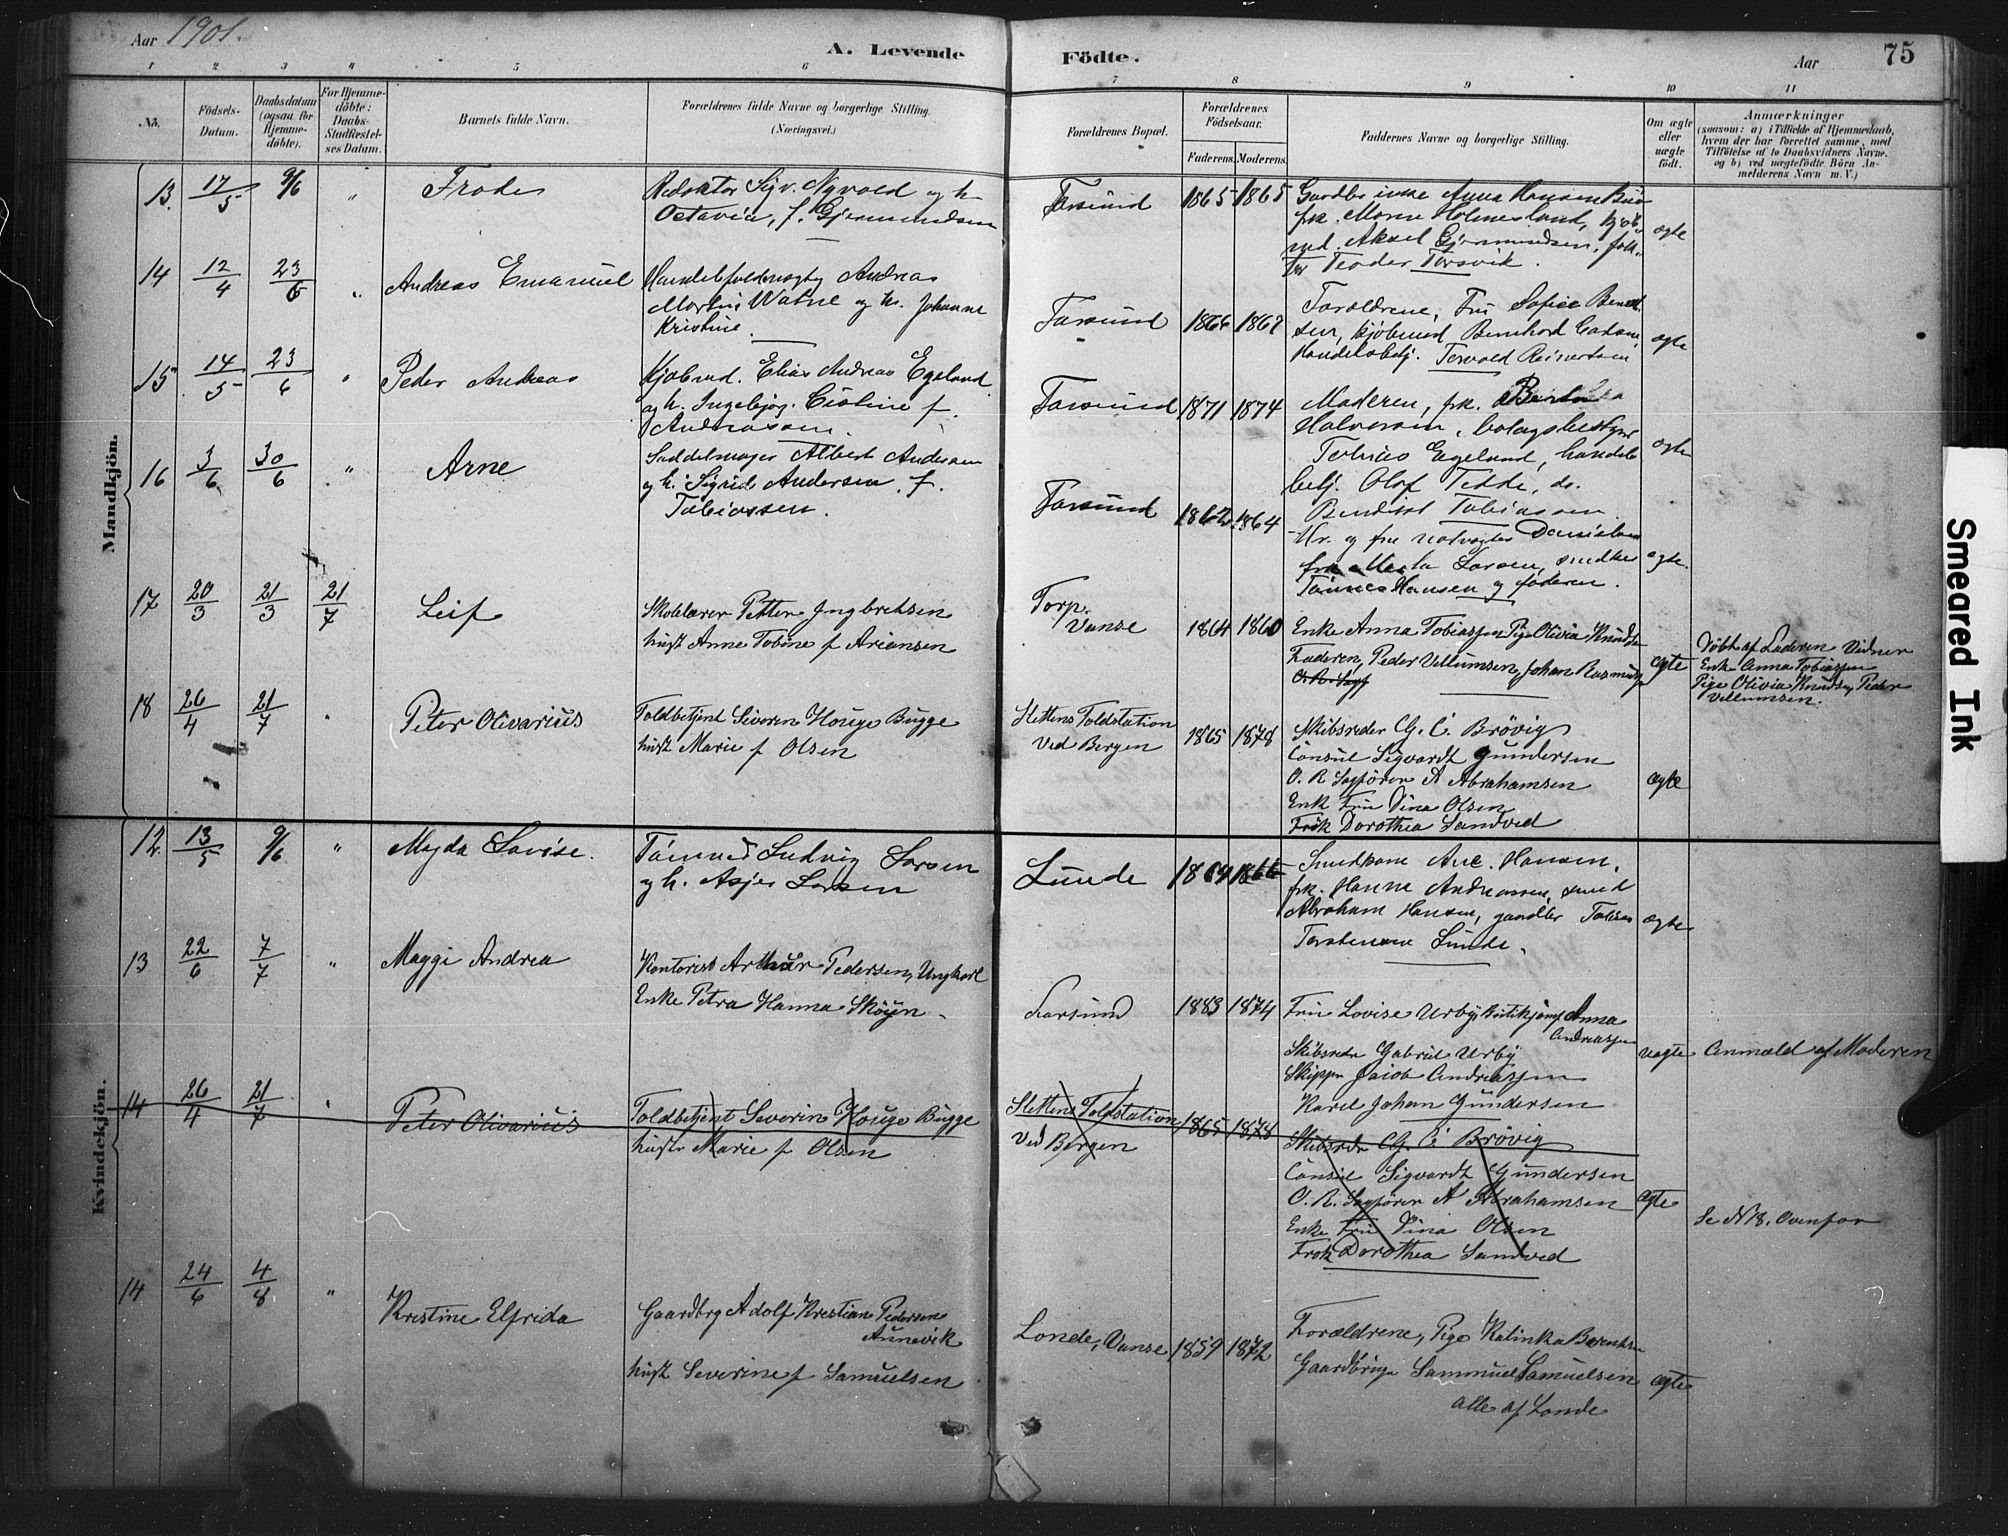 Aar 1901.
A. Levende
Födte.
Aar
75
1 2 3 4 5 6 7 8 9 10 11
No.
Födsels-
Datum.
Daabsdatum
(ogsaa for
Hjemme-
döbte).
For Hjemme-
döbte:
Daabs-
Stadfæstel-
ses Datum.
Barnets fulde Navn.
Forældrenes fulde Navne og borgerlige Stilling.
(Næringsvei.)
Forældrenes Bopæl.
Forældrenes
Födselsaar.
Faderens. Moderens.
Faddernes Navne og borgerlige Stilling.
Om ægte
eller
uægte
födt.
Anmærkninger
(saasom: a) i Tilfælde af Hjemmedaab,
hvem der har forrettet samme, med
Tilföielse af to Daabsvidners Navne,
og b) ved uægtefödte Börn An-
melderens Navn m. V.)
Mandkjön.
13. 17/5 9/6 " Frode
Redaktør Sigv. Nyvold og h.
Octavia, f. Gjermundsen
Farsund 1865 1865
Anna Hansen
frk. Maren Holmesland, kjøb
md. Aksel Gjermundsen,
Teodor Torsvik.
ægte
14 12/4 23/6 " Andreas Emanuel
Andreas
Martin Watne og h. Johanne
Kristine.
Farsund 1866 1867
Forældrene, Fru Sofie
kjøbmd Bernhard
Handelsbetj. Torvald Reinertsen
ægte
15 14/5 23/6 " Peder Andreas
Kjøbmd. Elias Andreas Egeland
og h. Ingebjør. Cistine f.
Andreassen.
Farsund 1871 1874
Moderen, frk.
Halvorsen,
Tobias Egeland, handels
betj. Olaf Tedde, do.
Bendikt Tobiassen
ægte
16 3/6 30/6 " Arne
Saddelmager Albert Andersen
og h. Sigrid Andersen, f.
Tobiassen.
Farsund 1862 1864
Hr. og fru Danielsen
frk. Larsen,
Hansen og faderen.
ægte.
17 20/3 21/3 21/7 Leif
Skolelærer Petter Ingbretsen
hust Anne Tobine f Ariansen
Torp.
Vanse
1864 1860
Enke Anna Tobiassen Pige Olivia Knuds
Faderen, Peder Villumsen, Johan Rasmus
O. R. Sagf
ægte
Döbt af Faderen Vidner
Enke Anna Tobiassen
Pige Olivia Knuds Peder
Villumsen.
18 26/4 21/7 " Peter Olivarius
Toldbetjent Severin Houge Bugge
hust Marie f Olsen
Slettens Toldstation
Ved Bergen
1865 1878
Skibsreder G. C. Brövig
Consul Sigvardt Gundersen
O. R. Sagförer A Abrahamsen
Enk Fru Dina Olsen
Frök Dorothea Sandved
ægte
Kvindekjön.
12. 13/5 9/6 " Magda Lovise.
Ludvig Larsen
og h. Asjer Larsen
Lunde 1864 1866
Ane Hansen,
frk. Hanne Andreassen, smed
Abraham Hansen, gaardbr Tobias
Torstensen Lunde.
ægte
13 22/6 7/7 " Maggi Andrea
Kontorist Arthur Pedersen, Ungkarl
Enke Petra Hanna Skögn
Farsund 1883 1874
Fru Lovise Urby, Anna
Andreassen
Skibsredr Gabriel Urby
Skipper Jacob Andreassen
Karel Johan Gundersen
uægte Anmæld af Moderen
14 26/4 21/7 " Peter Olivarius
Toldbetjent Severin Houge Bugge
hust Marie f Olsen
Slettens Toldstation
Ved Bergen
1865 1878
Skibsredr G. C Brövig
Consul Sigvardt Gundersen
O. R. Sagförer A Abrahamsen
Enke Fru Dina Olsen
Frök Dorothea Sandved
ægte
Se N 18. Ovenfor
14 24/6 4/8 " Kristine Elfrida
Gaardbrg Adolf Kristian Pedersen
Aunevik
hust Severine f Samuelsen
Londe, Vanse 1859 1872
Forældrene, Pige Kalinka Berents
Gaardbrug Sammuel Samuelsen
alle af Londe
ægte
Smeared Ink